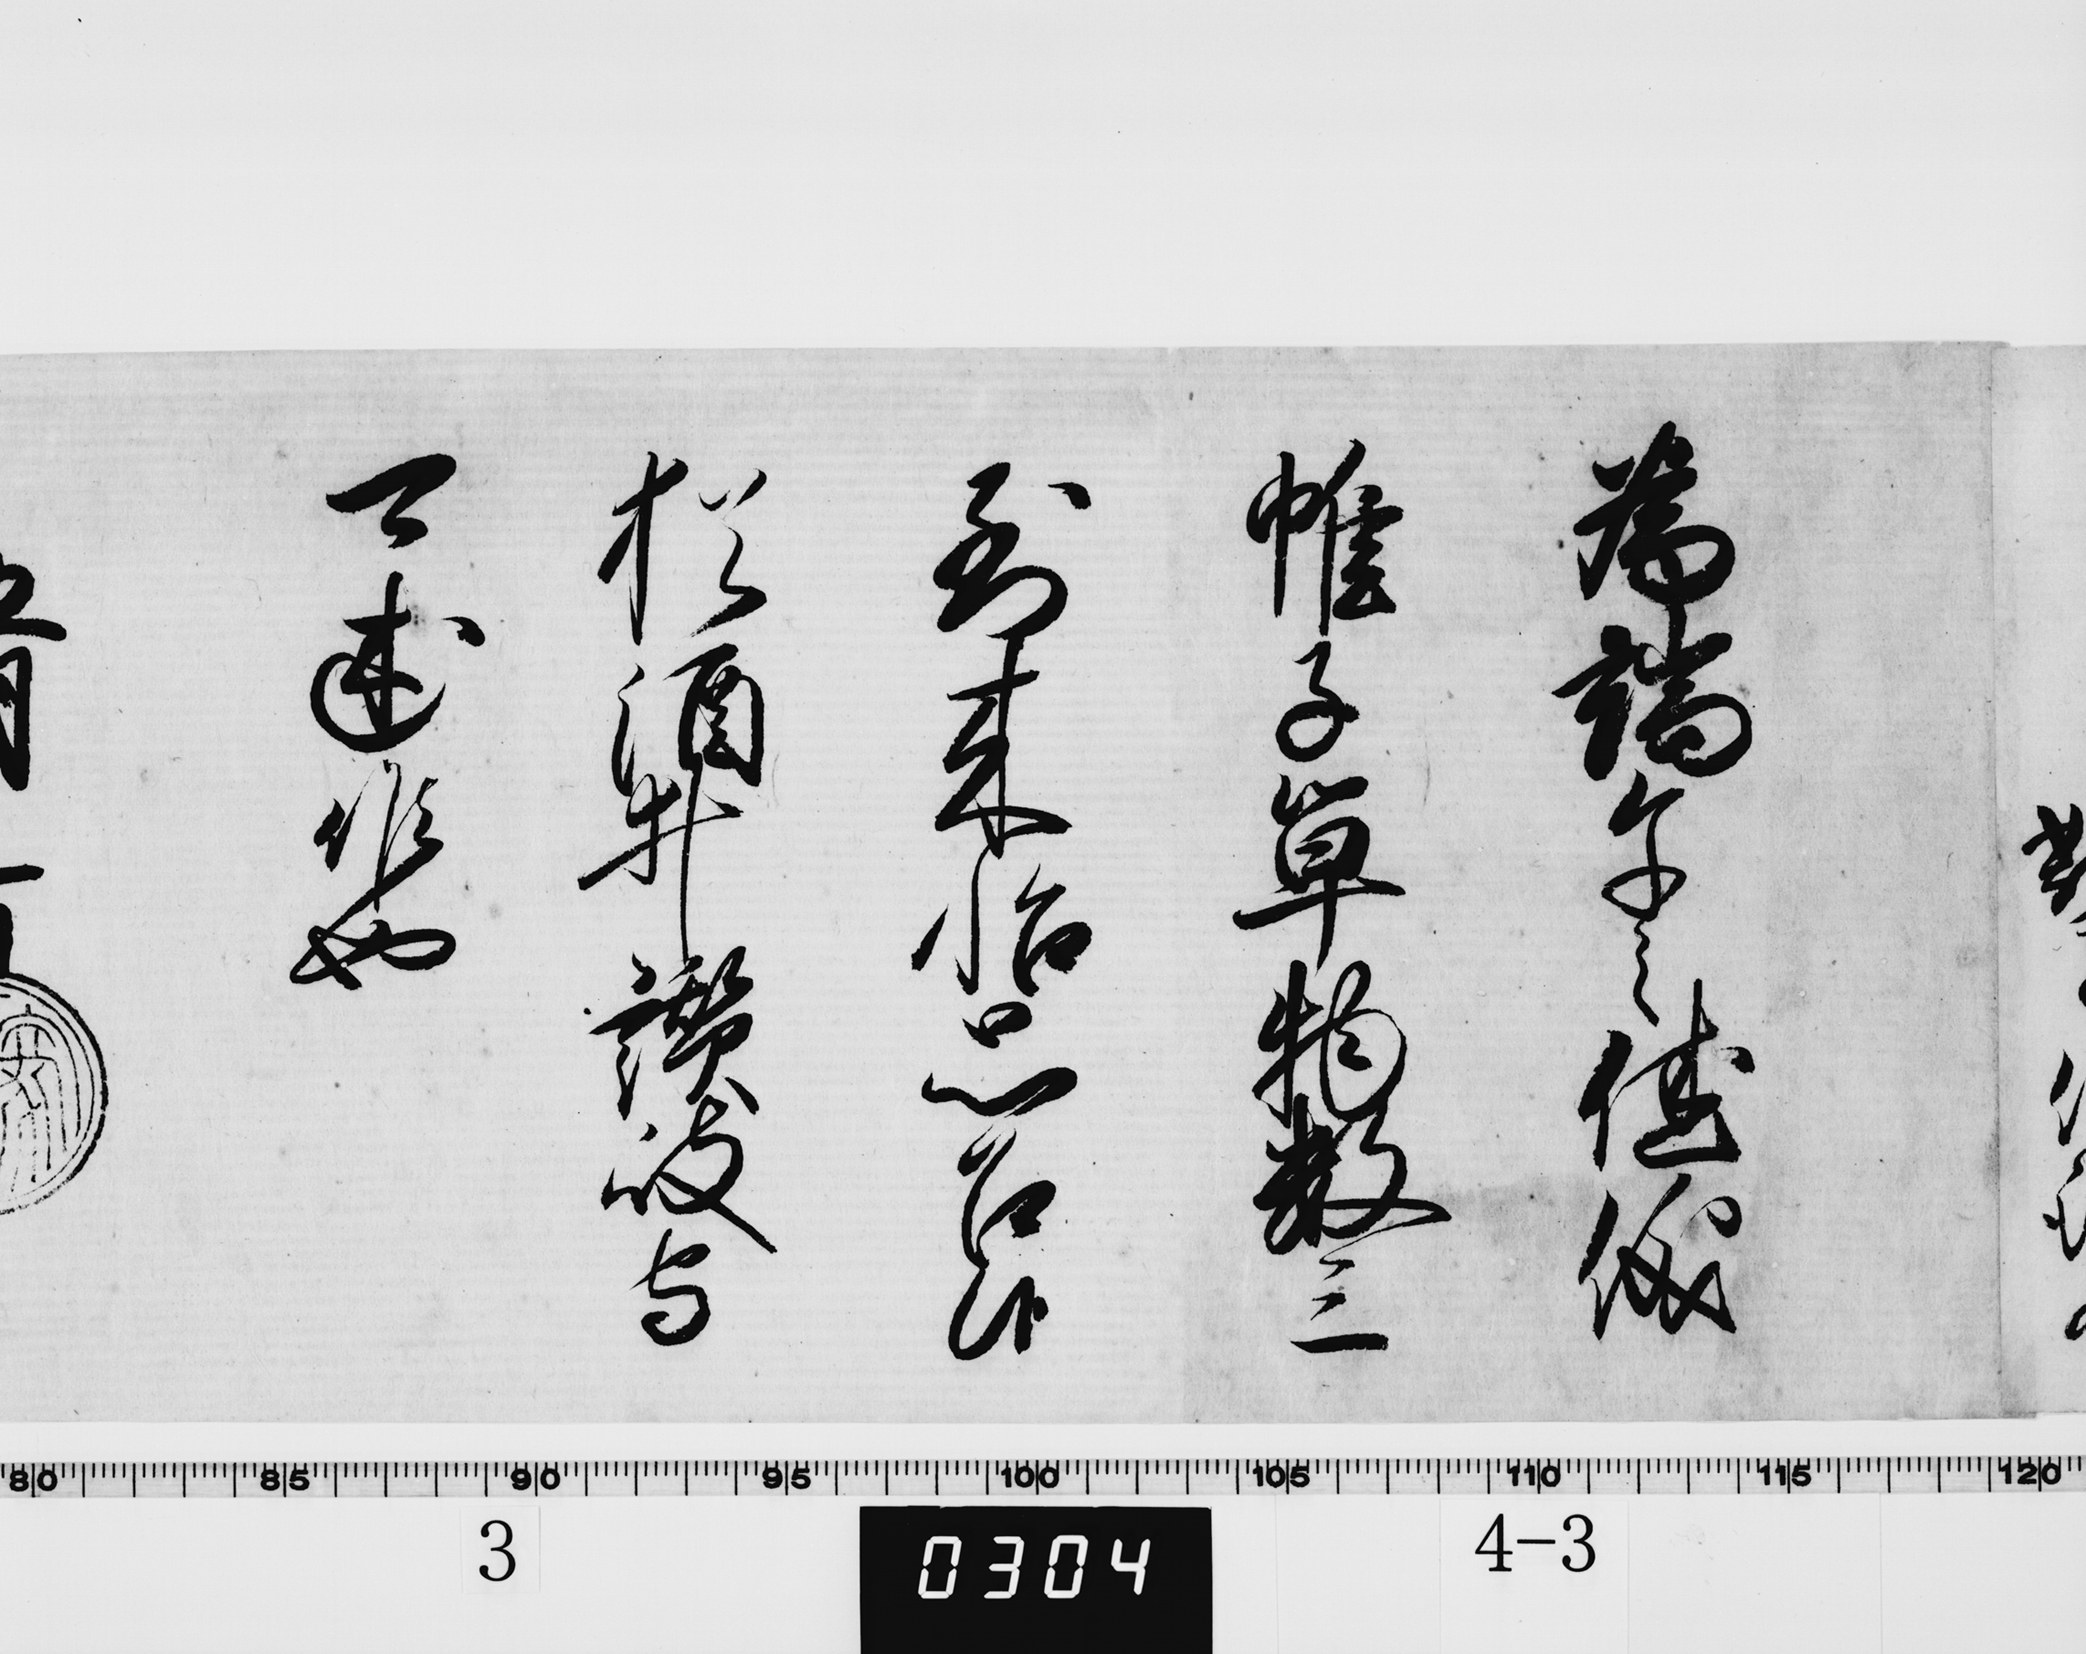 為端午之佳儀
帷子単物数三
到来怡思召候
猶酒井讃岐守
可述候也
80 85 90 95 100 105 110 115 120
3
0304
4-3